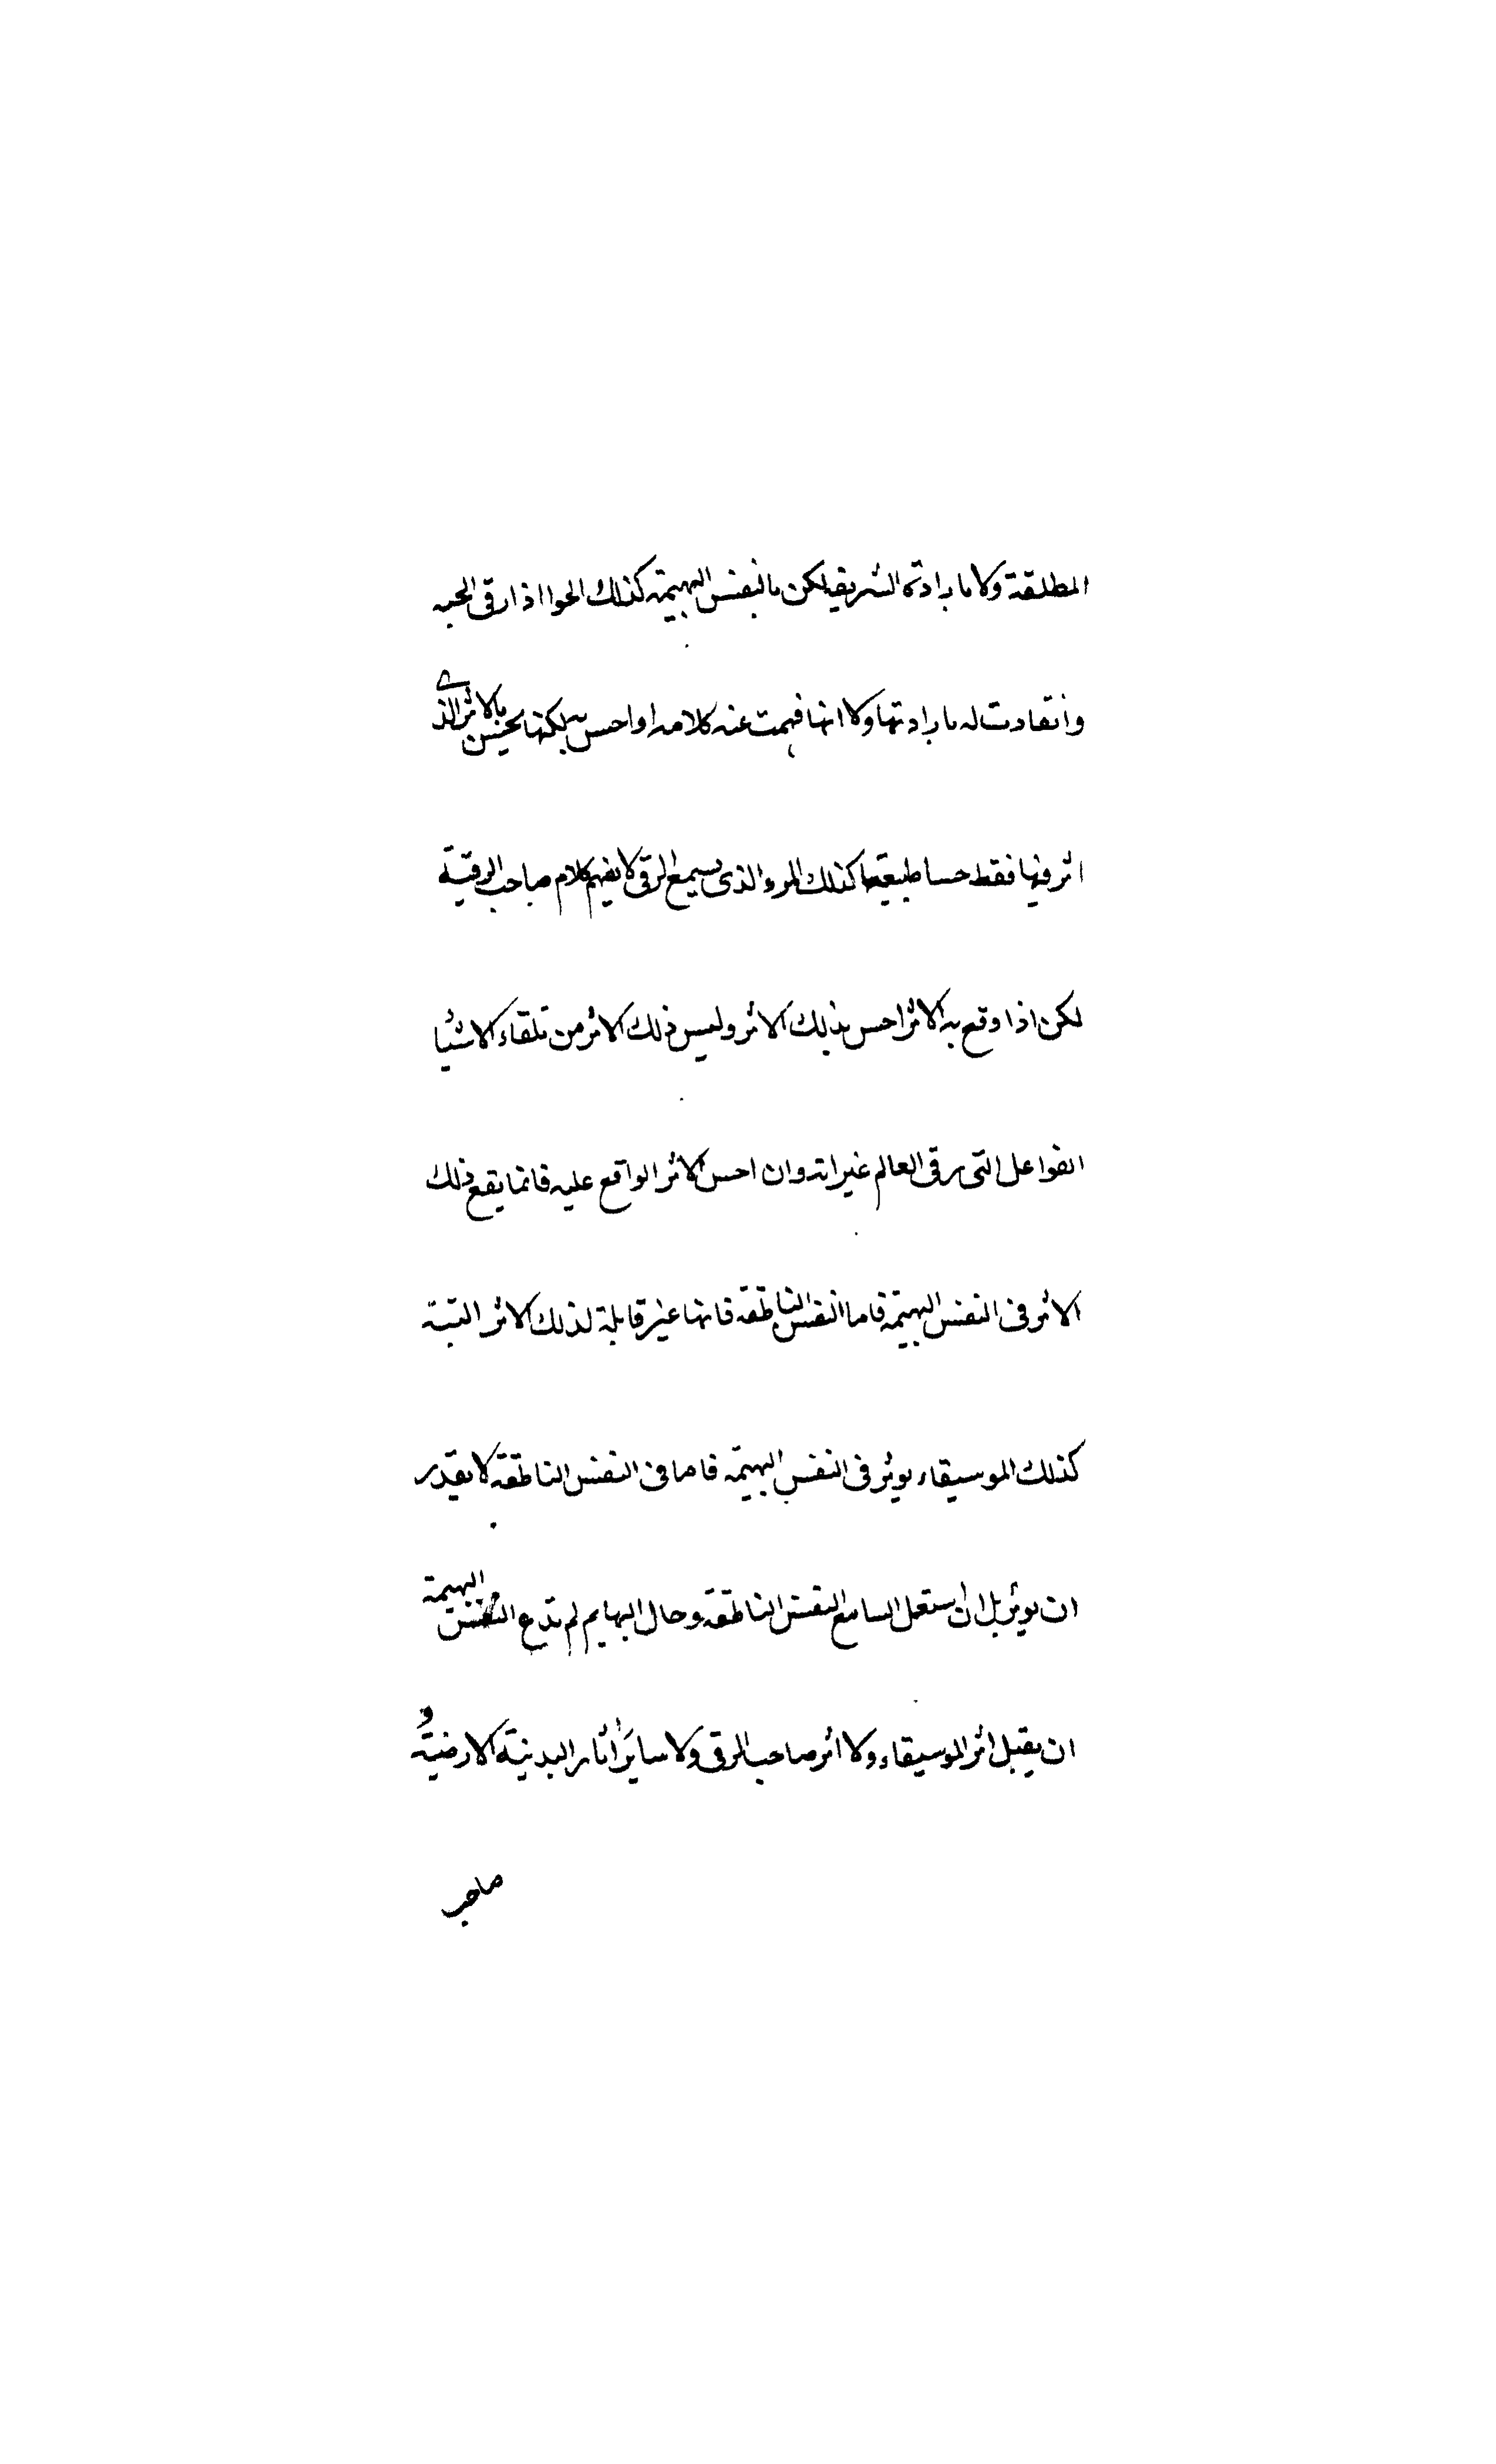 المطلقة ولا بارادته الشريفه لكن بالنفس البهيمية كذلك الحوا اذا رقى الحيه
وانقادت له بارادتها ولا انها فهمت عنه كلامه او احس به لكنها يحس بالاثر الذي
اثر فيها فقط حسا طبيعيا كذلك المرء الذى يسمع الرقى لا يفهم كلام صاحب الرقية
لكن اذا وقع به الاثر احس بذلك الاثر وليس ذلك الاثر من تلقاء الاشيا
الفواعل التى رقى العالم غير انه وان احس الاثر الواقع عليه فانما يقع ذلك
الاثر فى النفس البهيميه فاما النفس الناطقه فانها غير قابلة لذلك الاثر البتة
كذلك الموسيقاء يوثر فى النفس البهيميه فاما فى النفس الناطقه لا يقدر
ان يوثر بل ان استعمل السامع النفس الناطقة وحال البهايم لم تدع النفس البهيمية
ان يقبل اثر الموسيقاء ولا اثر صاحب الرقى ولا ساير اثار البدنية الارضية و
صاحب